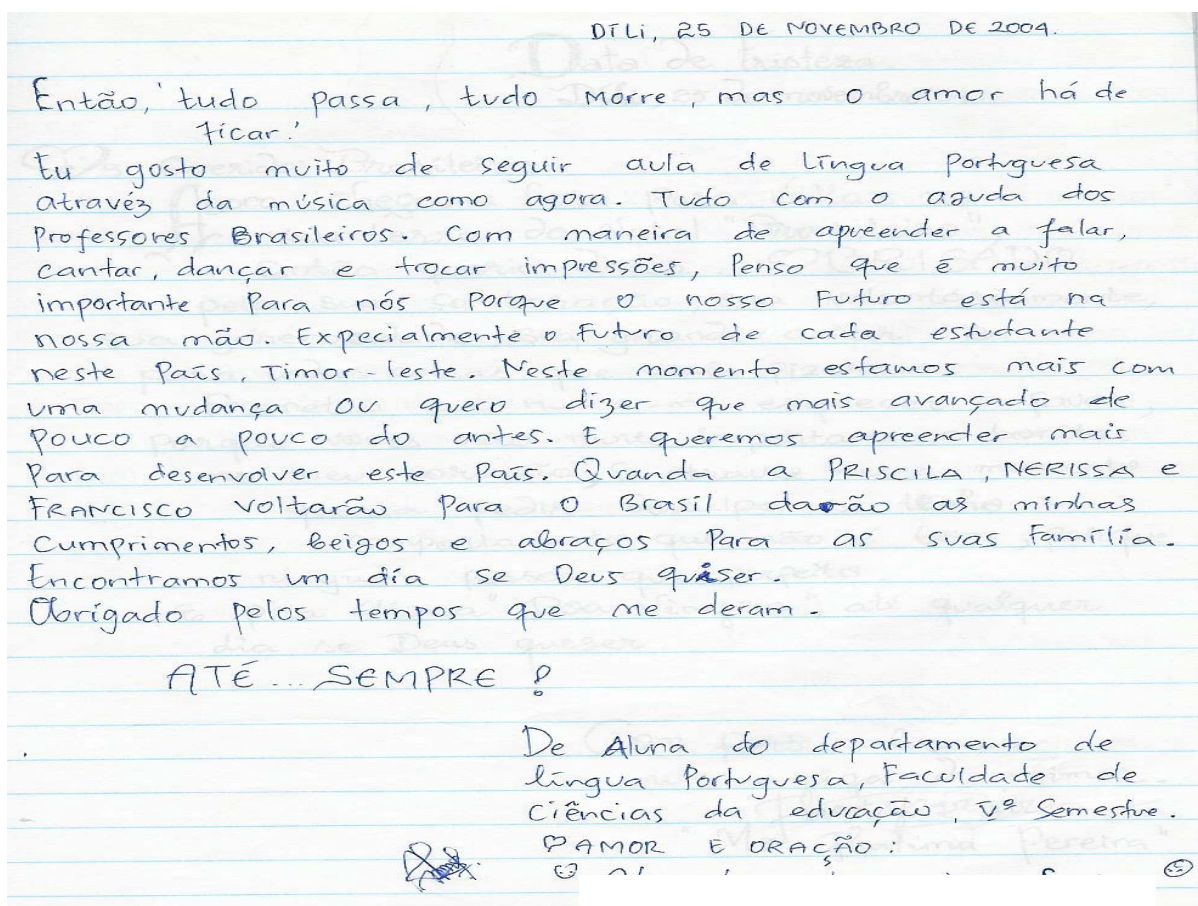 DíLi, 25 DE NOVEMBRO DE 2004.
Então, 'tudo passa, tudo morre, mas o amor há de
ficar.'
Eu gosto muito de seguir aula de Língua Portuguesa
atravéz da música como agora. Tudo com o aguda dos
Professores Brasileiros. Com maneira de apreender a falar,
cantar, dançar e trocar impressões, Penso que é muito
importante Para nós Porque o nosso Futuro está na
nossa mão. Expecialmente o Futuro de cada estudante
neste País, Timor-leste. Neste momento estamos mais com
uma mudança ou quero dizer que mais avançado de
Pouco a pouco do antes. E queremos apreender mais
Para desenvolver este País. Quanda a PRISCILA, NERISSA e
FRANCISCO voltarão Para o Brasil darão as minhas
Cumprimentos, beigos e abraços Para as suas Família.
Encontramos um día se Deus quiser.
Obrigado pelos tempos que me deram.
ATÉ... SEMPRE!
De Aluna do departamento de
língua Portuguesa, Faculdade de
Ciências da educação, Vº Semestre.
♡AMOR E ORAÇÃO: